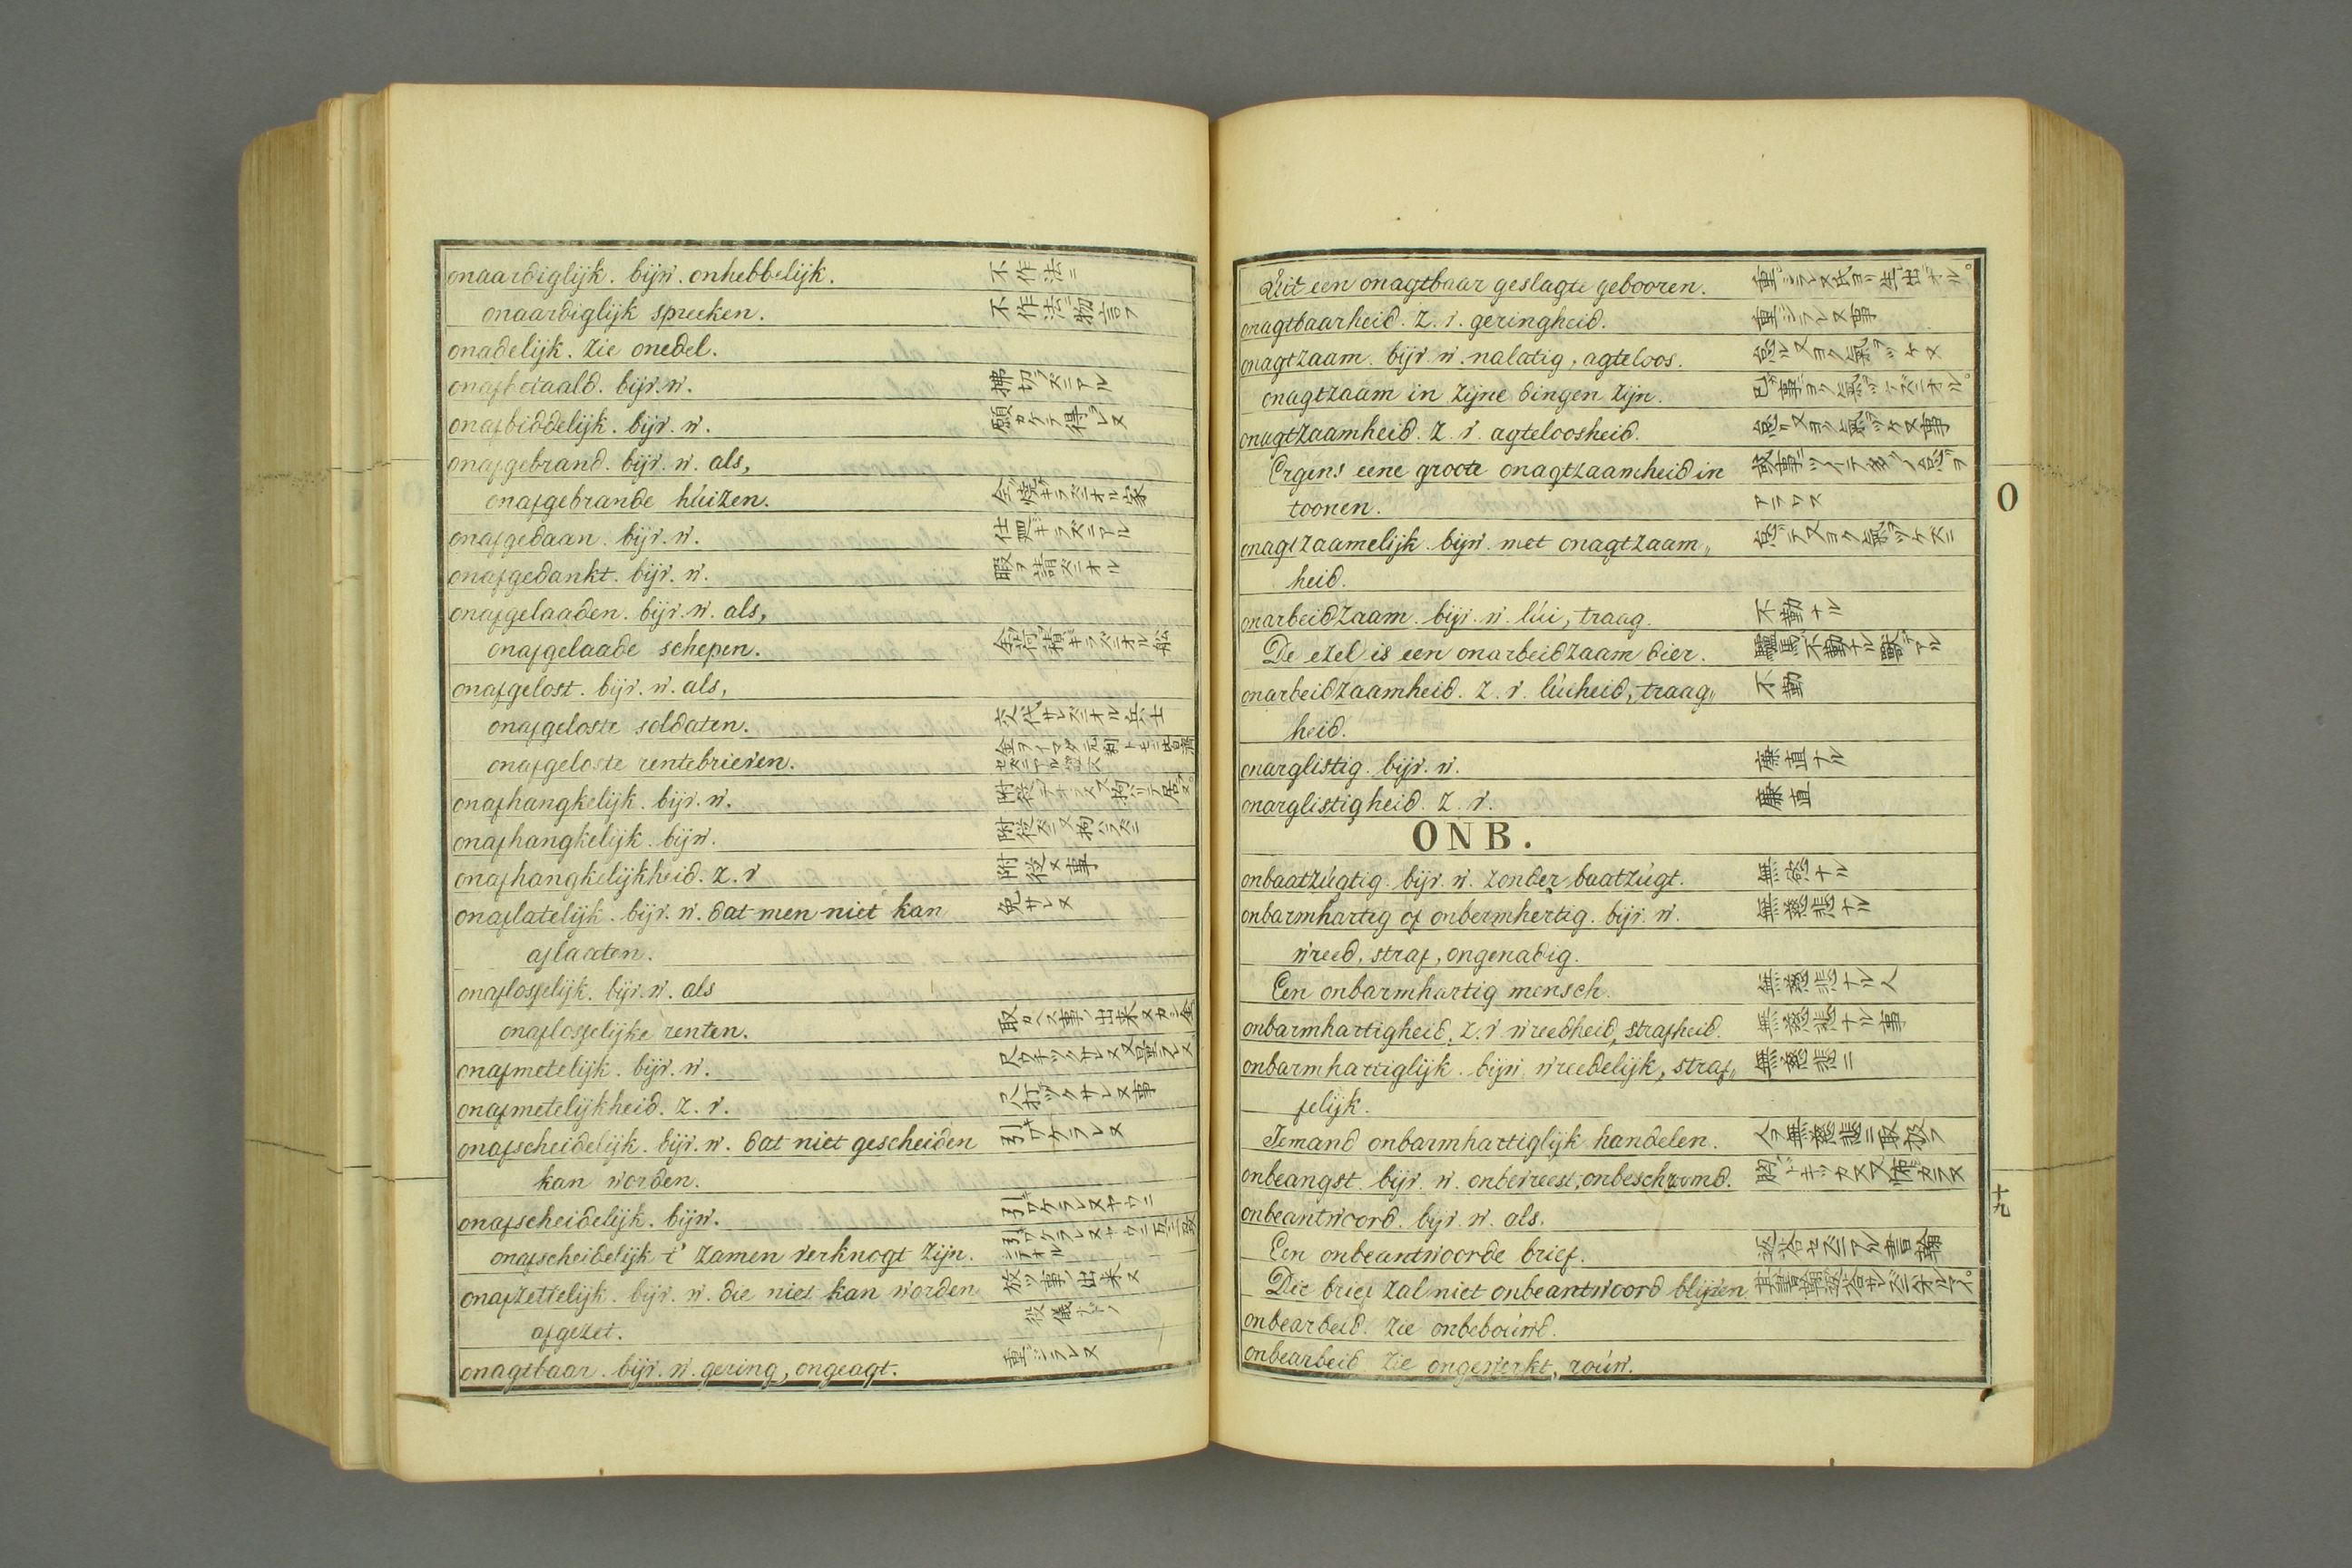 onaardiglijk. bijw. onhebbelijk. 不作法ニ
onaardiglijk spreeken. 不作法ニ物言フ
onadelijk. zie onedel.
onafbetaald. bijv. w. 拂切ラズニアル
onafbiddelijk. bijv. w. 願カケテ得ラレヌ
onafgebrand. bijv. w. als,
onafgebrande húizen. 全ク燒キラズニオル家
onafgedaan. bijv. w. 仕皿キラズニアル
onafgedankt. bijv. w. 暇ヲ請ズニオル
onafgelaaden. bijv. w. als,
onafgelaade schepen. 全ク荷積キラズニオル舩
onafgelost. bijv. w. als,
onafgeloste soldaten. 交代サレズニオル兵士
onafgeloste rentebrieven. 金ヲイマダ元利トモニ皆濟セズニアル證文
onafhangkelijk. bijv. w. 附從
onafhangkelijk. bijw. 附從セズニ又拘ハラズニ
onafhangkelijkheid. z. v 附從ヌ事
onaflatelijk. bijv. w. dat men niet kan 免サレヌ
aflaaten.
onaflosselijk. bijv. w. als
onaflosselijke renten. 取カヘス事ノ出來ヌカシ金
onafmetelijk. bijv. w.
onafmetelijkheid. z. v. 尺打ツクサレヌ事
onafscheidelijk. bijv. w. dat niet gescheiden 引ワケラレヌ
kan worden.
onafscheidelijk. bijw. 引ワケラレヌヤウニ
onafscheidelijk t' zamen verknogt zijn. 引ワケラレヌヤウニ互ニ
onafzettelijk. bijv. w. die niet kan worden 放ツ事ノ出來ヌ
afgezet. 役儀ナド
onagtbaar. bijv. w. gering, ongeagt. 重ンジラレヌ
Uit een onagtbaar geslagte gebooren. 重ンジラレヌ氏ヨリ生出テオル。
onagtbaarheid. z. v. geringheid. 重ンジラレヌ事
onagtzaam. bijv. w. nalatig, agteloos. 怠ル又ヨク氣ヲツケヌ
onagtzaam in zijne dingen zijn. 己ガ事ニヨク氣ヲツケズニオル。
onagtzaamheid. z. v. agteloosheid. 怠リ又ヨク氣ヲツケヌ事
Ergens eene groote onagtzaamheid in 或事ニツイテ
toonen. アラワス
onagtzaamelijk. bijw. met onagtzaam„ 怠ッテ又ヨク氣ヲツケズニ
heid.
onarbeidzaam. bijv. w. lúi, traag. 不勤ナル
De ezel is een onarbeidzaam dier. 驢馬ハ不勤ナル獸デアル
onarbeidzaamheid. z. v. lúiheid, traag„ 不勤
heid.
onarglistig. bijv. w. 廉直ナル
onarglistigheid. z. v. 廉直
ONB.
onbaatzúgtig. bijv. w. zonder baatzúgt. 無慾ナル
onbarmhartig of onbermhertig. bijv. w. 無慈悲ナル
wreed, straf, ongenadig.
Een onbarmhartig mensch. 無慈悲ナル人
onbarmhartigheid. z. v. wreedheid, strafheid. 無慈悲ナル事
onbarmhartiglijk. bijw. wreedelijk, straf„ 無慈悲ニ
felijk.
Jemand onbarmhartiglijk handelen. 人ヲ無慈悲ニ取扱フ
onbeangst. bijv. w. onbevreest, onbeschroomd.
onbeantwoord. bijv. w. als.
Een onbeantwoorde brief. 返答セズニアル書翰
Die brief zal niet onbeantwoord blijven.
onbearbeid. zie onbeboúwd.
onbearbeid zie ongewerkt, roúw.
O
十九